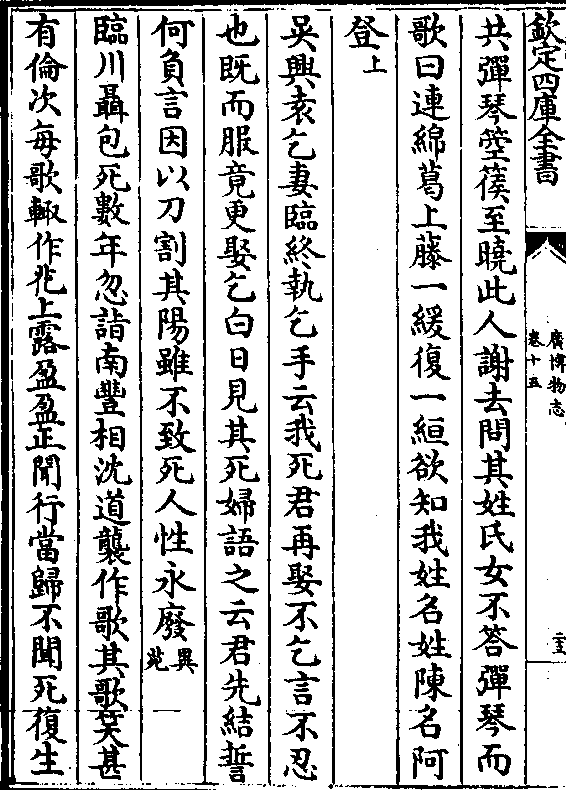 欽定四庫全書
廣博物志
卷十五
二十三
共彈琴箜篌至曉此人謝去問其姓氏女不答彈琴而
歌曰連綿葛上藤一緩復一絙欲知我姓名姓陳名阿
登上
吳興袁乞妻臨終執乞手云我死君再娶不乞言不忍
也既而服竟更娶乞白日見其死婦語之云君先結誓
何負言因以刀割其陽雖不致死人性永廢異苑
臨川聶包死數年忽詣南豐相沈道襲作歌其歌笑甚
有倫次每歌輒作花上露盈盈正聞行當歸不聞死復生